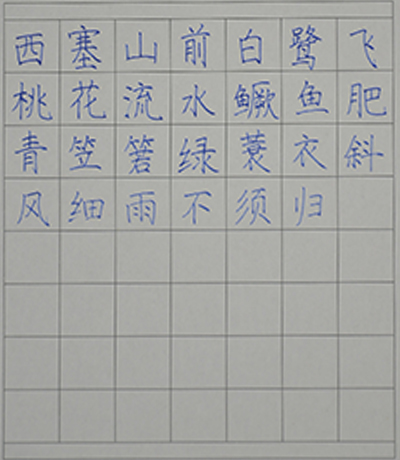 西塞山前白鹭飞
桃花流水鳜鱼肥
青笠箬绿蓑衣斜
风细雨不须归